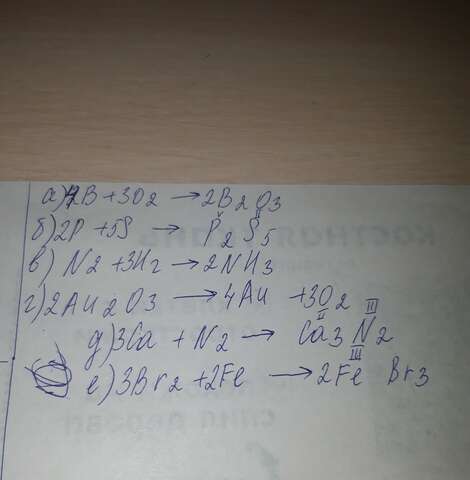 а) 4B + 3O2 → 2B2O3
б) 2P + 5S → P2S5
в) N2 + 3H2 → 2NH3
г) 2Au2O3 → 4Au + 3O2
д) 3Ca + N2 → Ca3N2
е) 3Br2 + 2Fe → 2FeBr3